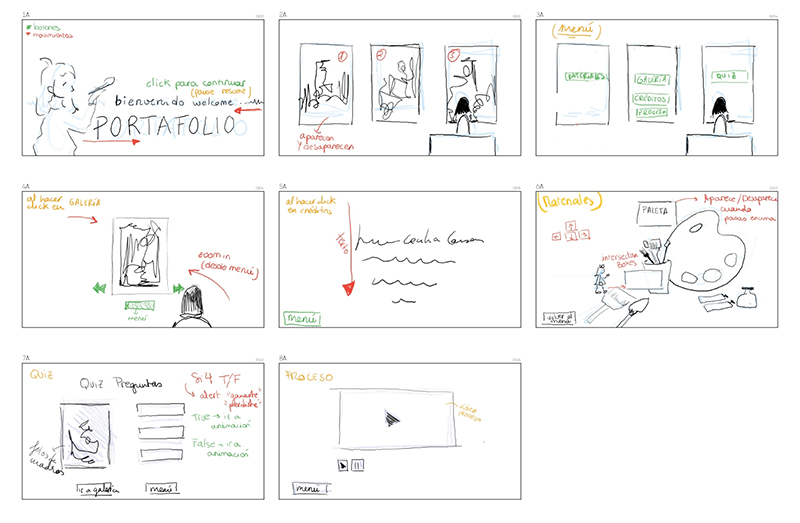 1A
botones
movimientos
click para continuar
(pause resume)
bienvenido welcome
PORTAFOLIO
2A
1
2
3
aparecen
y desaparecen
3A
(Menú)
MATERIALES
GALERÍA
CRÉDITOS
PROCESO
QUIZ
4A
al hacer
click en GALERÍA
zoom in
(desde menú)
menú
5A
al hacer click
en créditos
texto
Cecilia
menú
6A
(Materiales)
PALETA
Aparece/Desaparece
cuando
pasas encima
intersectan
Bores
volver al
menú
7A
QUIZ
Quiz Preguntas
Si 4 T/F
alert "ganaste"
"perdiste"
True → ir a
animación
False → ir a
animación
fotos de
cuadros
ir a galería
menú
8A
PROCESO
video
proceso
menú